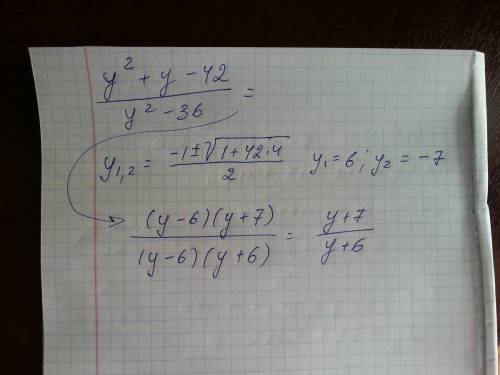 (y² + y - 42) / (y² - 36) =
y₁,₂ = (-1 ± √(1 + 42·4)) / 2   y₁ = 6 ; y₂ = -7
((y - 6)(y + 7)) / ((y - 6)(y + 6)) = (y + 7) / (y + 6)